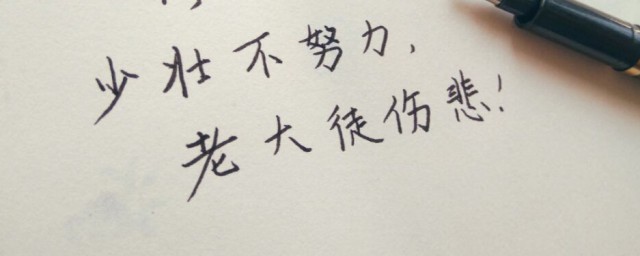 少壮不努力,
老大徒伤悲!